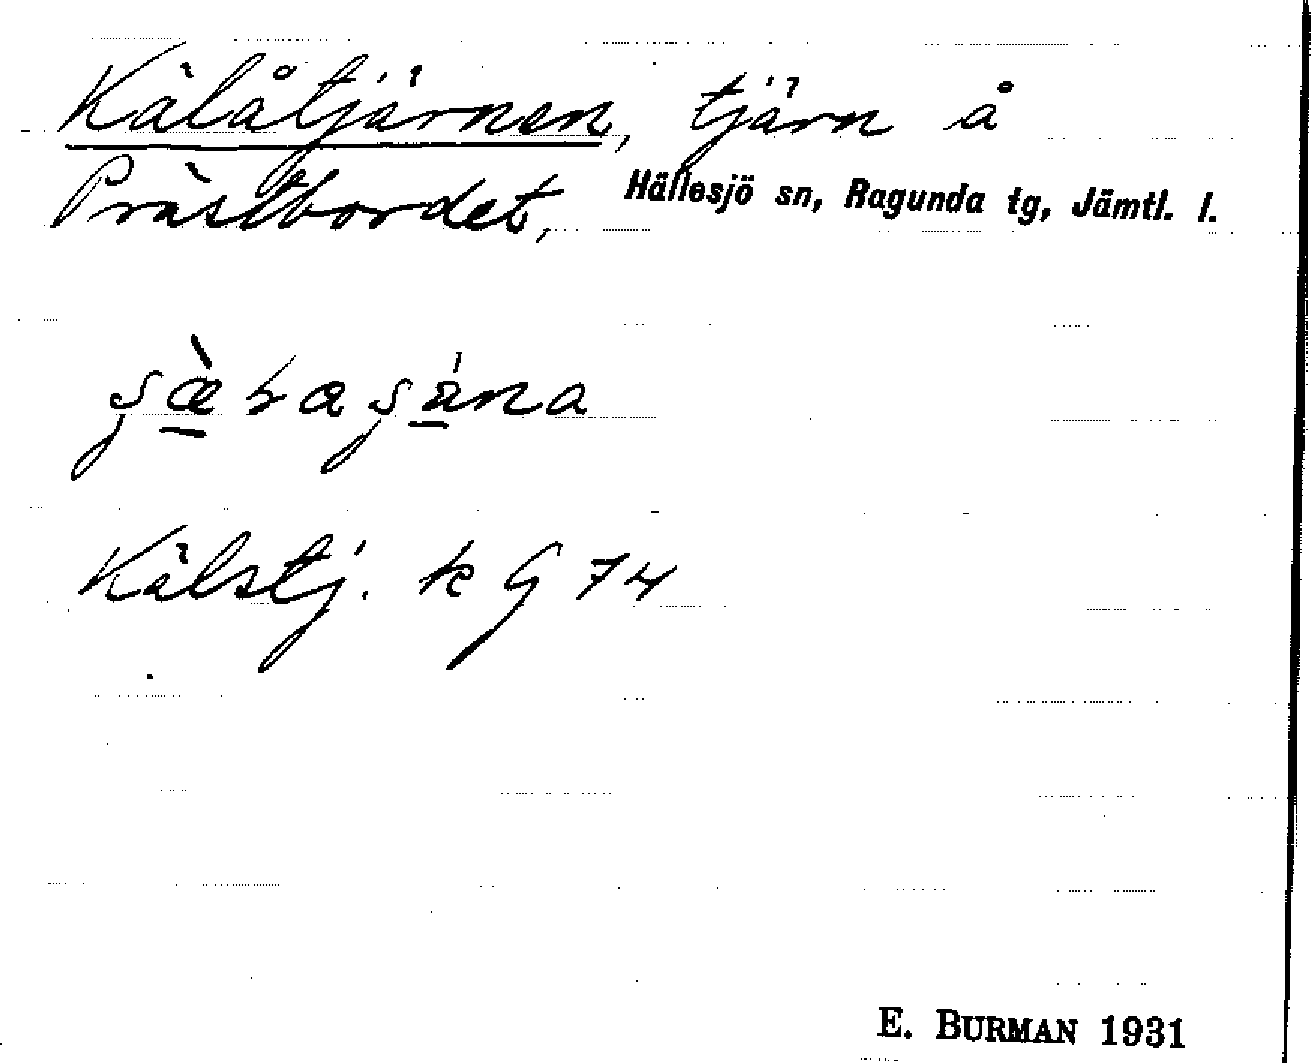 Kälåtjärnen, tjärn å
Prästbordet, Hällesjö sn, Ragunda tg, Jämtl. l.
Kälstj. k G 74
E. BURMAN 1931